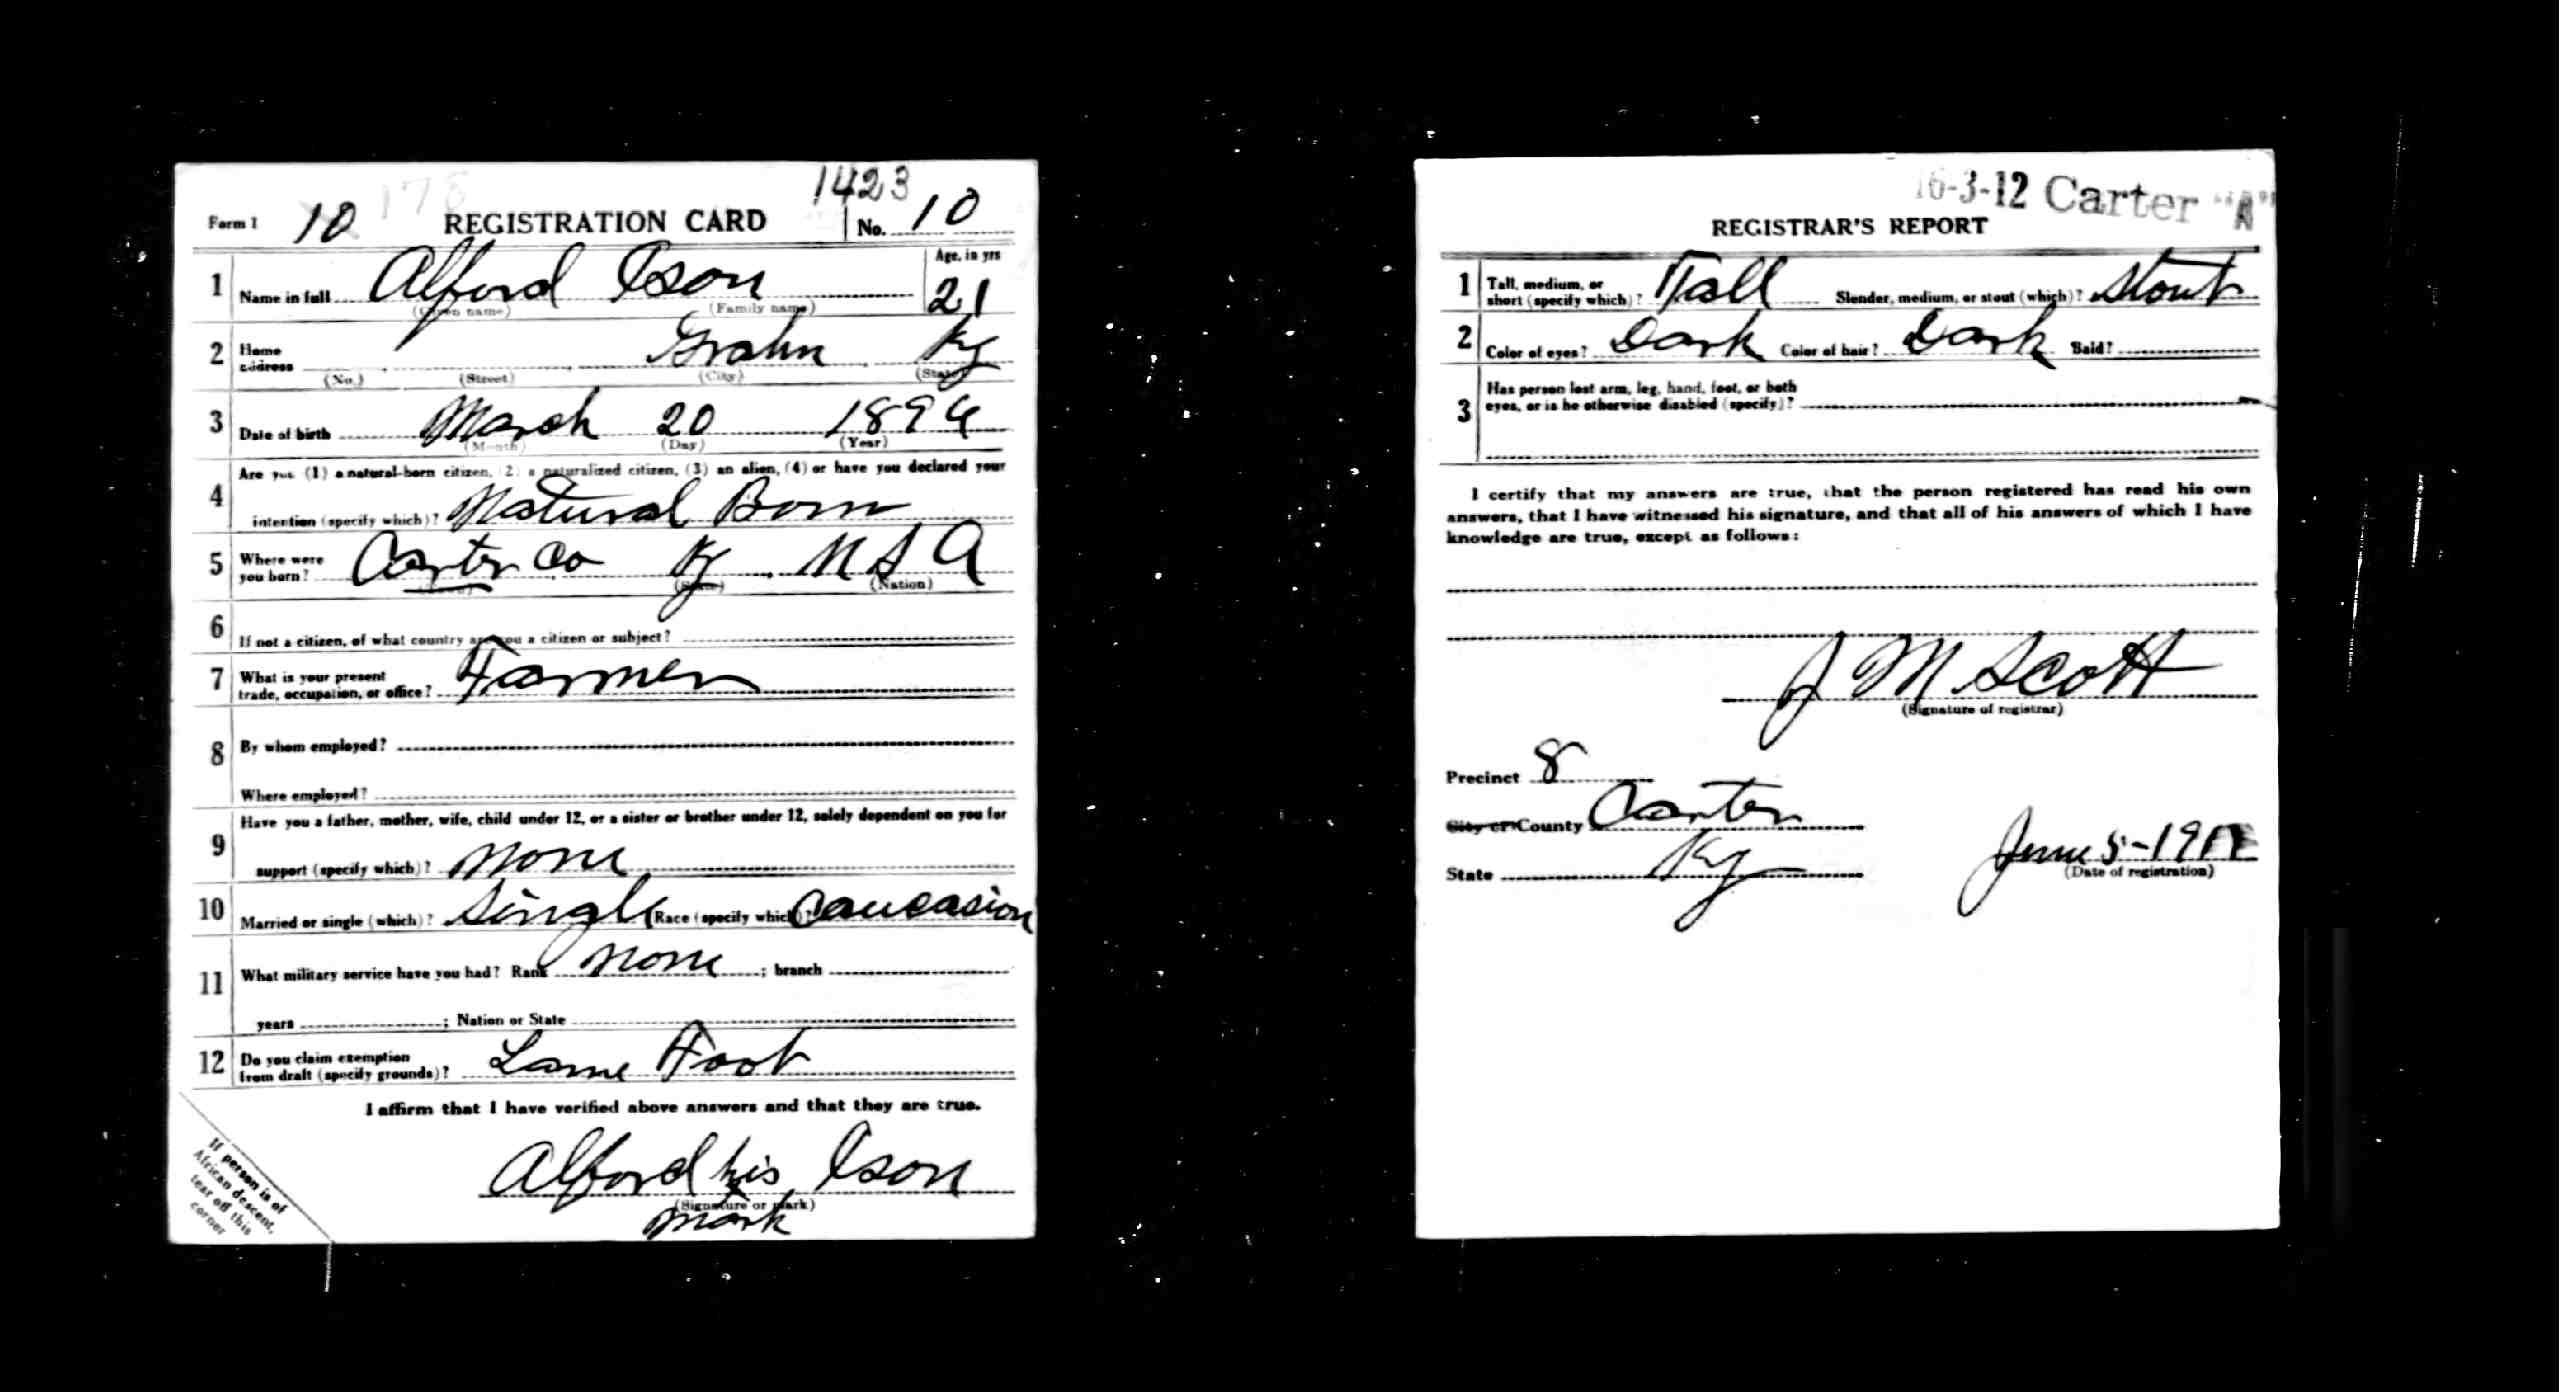 1423
Form 1 10 178 REGISTRATION CARD No. 10
1 Name in full Alford Ison Age, in yrs 21
(Given name) (Family name)
2 Home address Grahn Ky
(No.) (Street) (City) (State)
3 Date of birth March 20 1896
(Month) (Day) (Year)
4 Are you (1) a natural-born citizen, (2) a naturalized citizen, (3) an alien, (4) or have you declared your
intention (specify which)? Natural Born
5 Where were you born? Carter Co Ky U S A
(Town) (State) (Nation)
6 If not a citizen, of what country are you a citizen or subject?
7 What is your present trade, occupation, or office? Farmer
8 By whom employed?
Where employed?
9 Have you a father, mother, wife, child under 12, or a sister or brother under 12, solely dependent on you for
support (specify which)? None
10 Married or single (which)? Single Race (specify which)? Caucasion
11 What military service have you had? Rank None ; branch
years ; Nation or State
12 Do you claim exemption from draft (specify grounds)? Lame Foot
I affirm that I have verified above answers and that they are true.
Alford his Ison
x
(Signature or mark)
mark
If person is of
African descent,
tear off this
corner
16-3-12 Carter "A"
REGISTRAR'S REPORT
1 Tall, medium, or short (specify which)? Tall Slender, medium, or stout (which)? Stout
2 Color of eyes? Dark Color of hair? Dark Bald?
3 Has person lost arm, leg, hand, foot, or both
eyes, or is he otherwise disabled (specify)?
I certify that my answers are true, that the person registered has read his own
answers, that I have witnessed his signature, and that all of his answers of which I have
knowledge are true, except as follows:
J M Scott
(Signature of registrar)
Precinct 8
City or County Carter
State Ky
June 5-1917
(Date of registration)